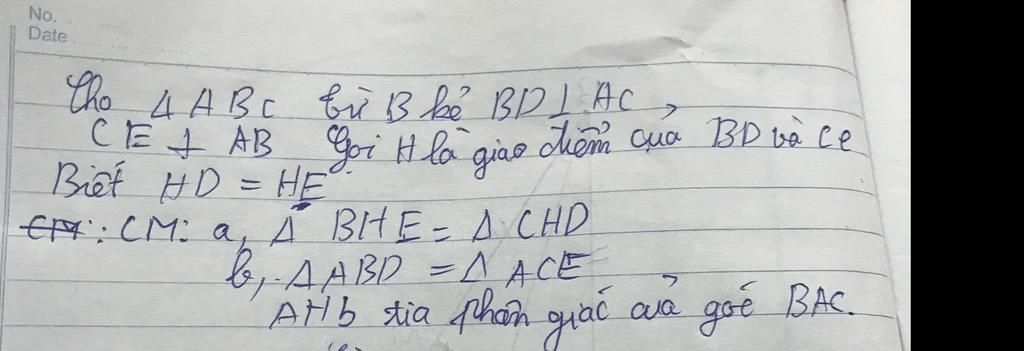 No.
Date
Cho Δ ABC từ B kẻ BD ⊥ AC,
CE ⊥ AB Gọi H là giao điểm của BD và CE
Biết HD = HE
CM: CM: a, Δ BHE = Δ CHD
b, Δ ABD = Δ ACE
AHb tia phân giác của goć BAC.